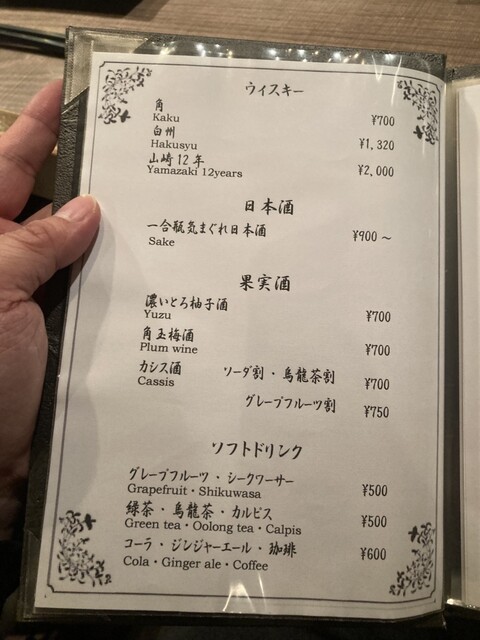 ウィスキー
角
Kaku ¥700
白州
Hakusyu ¥1,320
山崎12年
Yamazaki 12years ¥2,000
日本酒
一合瓶気まぐれ日本酒
Sake ¥900～
果実酒
濃いとろ柚子酒
Yuzu ¥700
角玉梅酒
Plum wine ¥700
カシス酒 ソーダ割・烏龍茶割
Cassis ¥700
グレープフルーツ割 ¥750
ソフトドリンク
グレープフルーツ・シークワーサー
Grapefruit・Shikuwasa ¥500
緑茶・烏龍茶・カルピス
Green tea・Oolong tea・Calpis ¥500
コーラ・ジンジャーエール・珈琲
Cola・Ginger ale・Coffee ¥600